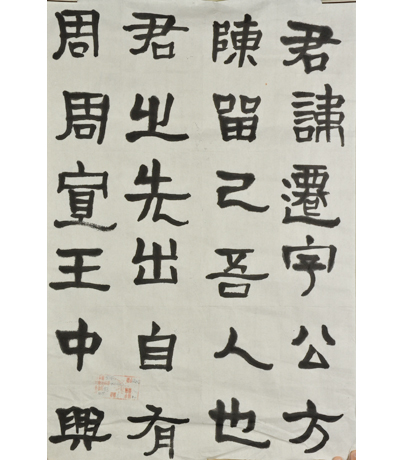 君諱遷字公方
陳留己吾人也
君之先出自有
周周宣王中興